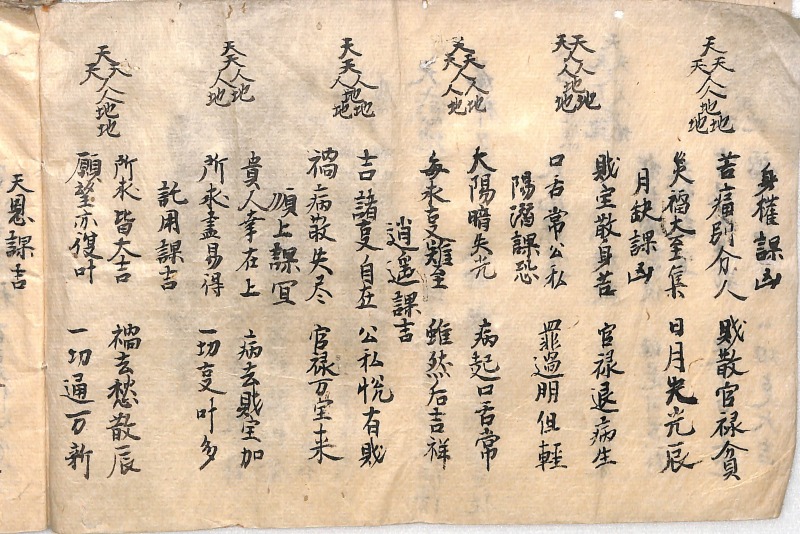 天天天人人地地地
身權課凶
苦痛別分人 財散官禄貧
災福大至集 日月失光辰
月缺課凶
天天人人人地地地
財宝散身苦 官禄退病生
口舌常公私 罪過明但輕
陽溜課恐
大陽暗失光 病起口舌常
每求叓難至 雖然后吉祥
逍遥課吉
吉諸叓自在 公私悦有財
禍病散失尽 官禄万宝来
順上課冝
貴人幸在上 病去財宝加
所求盡易得 一切叓叶多
託用課吉
天天天人人地地
所求皆大吉 禍去愁散辰
願望亦復叶 一切通万新
天恩課吉